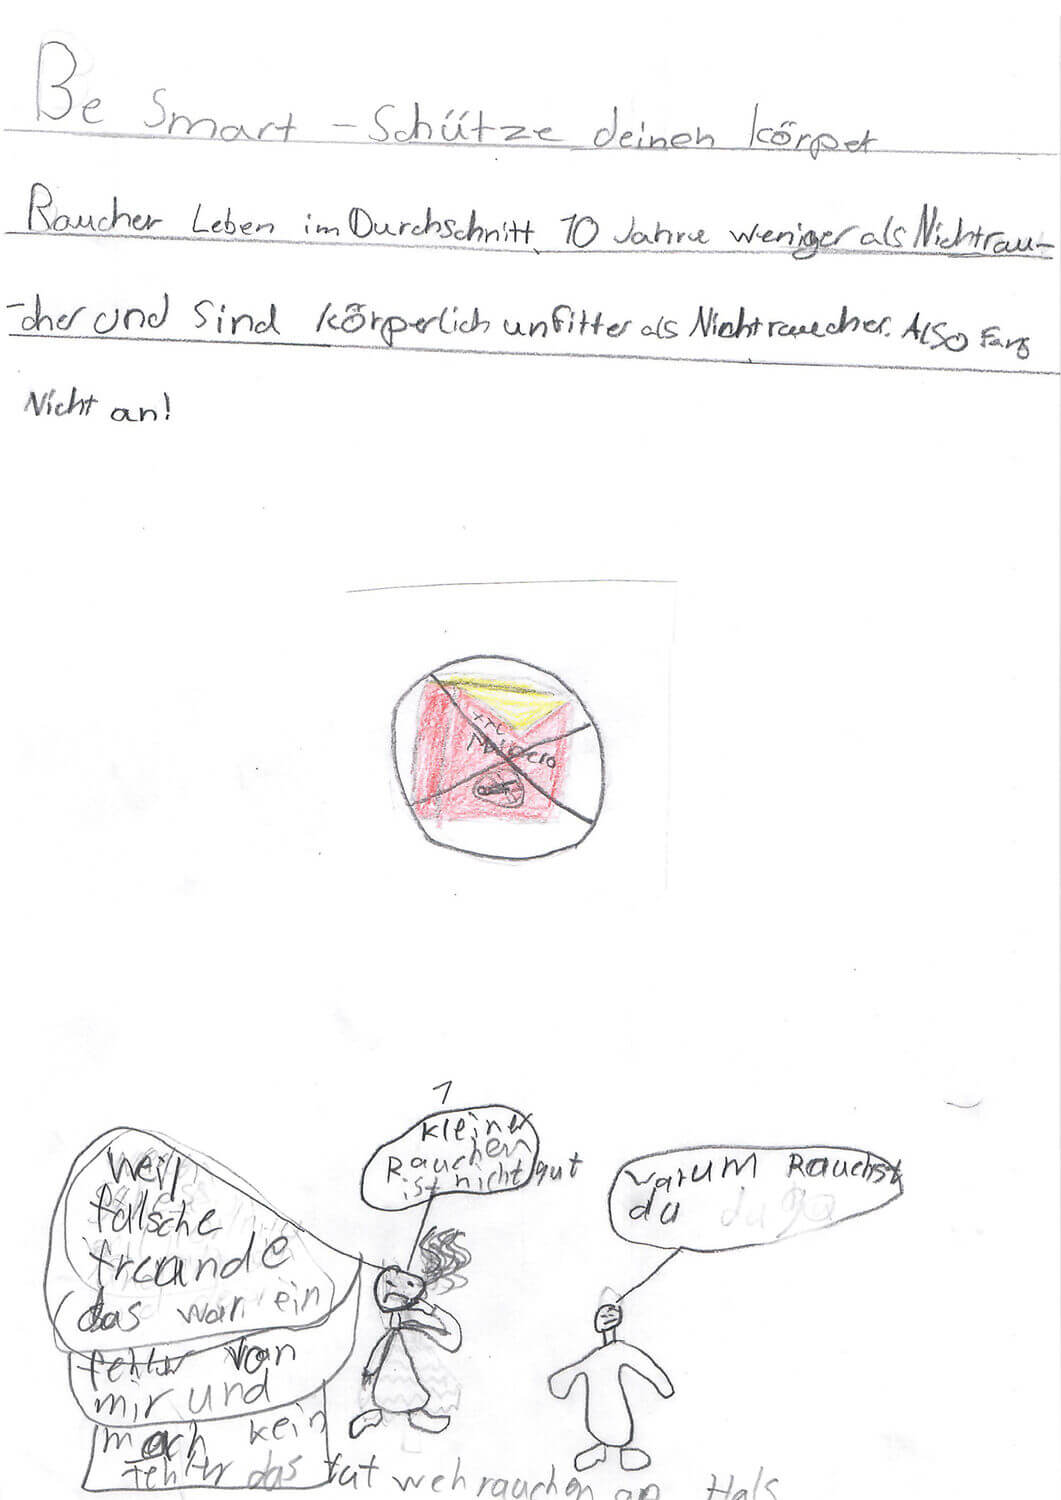 Be Smart - Schütze deinen körper
Raucher Leben im Durchschnitt 10 Jahre weniger als Nichtrau-
-cher und Sind körperlich unfitter als Nichtraucher. Also Fang
Nicht an!
1
kleiner
Rauchen
ist nicht gut
warum Rauchst
du
weil
falsche
freunde
das war ein
fehler von
mir und
mach kein
fehler das tut weh rauchen an Hals